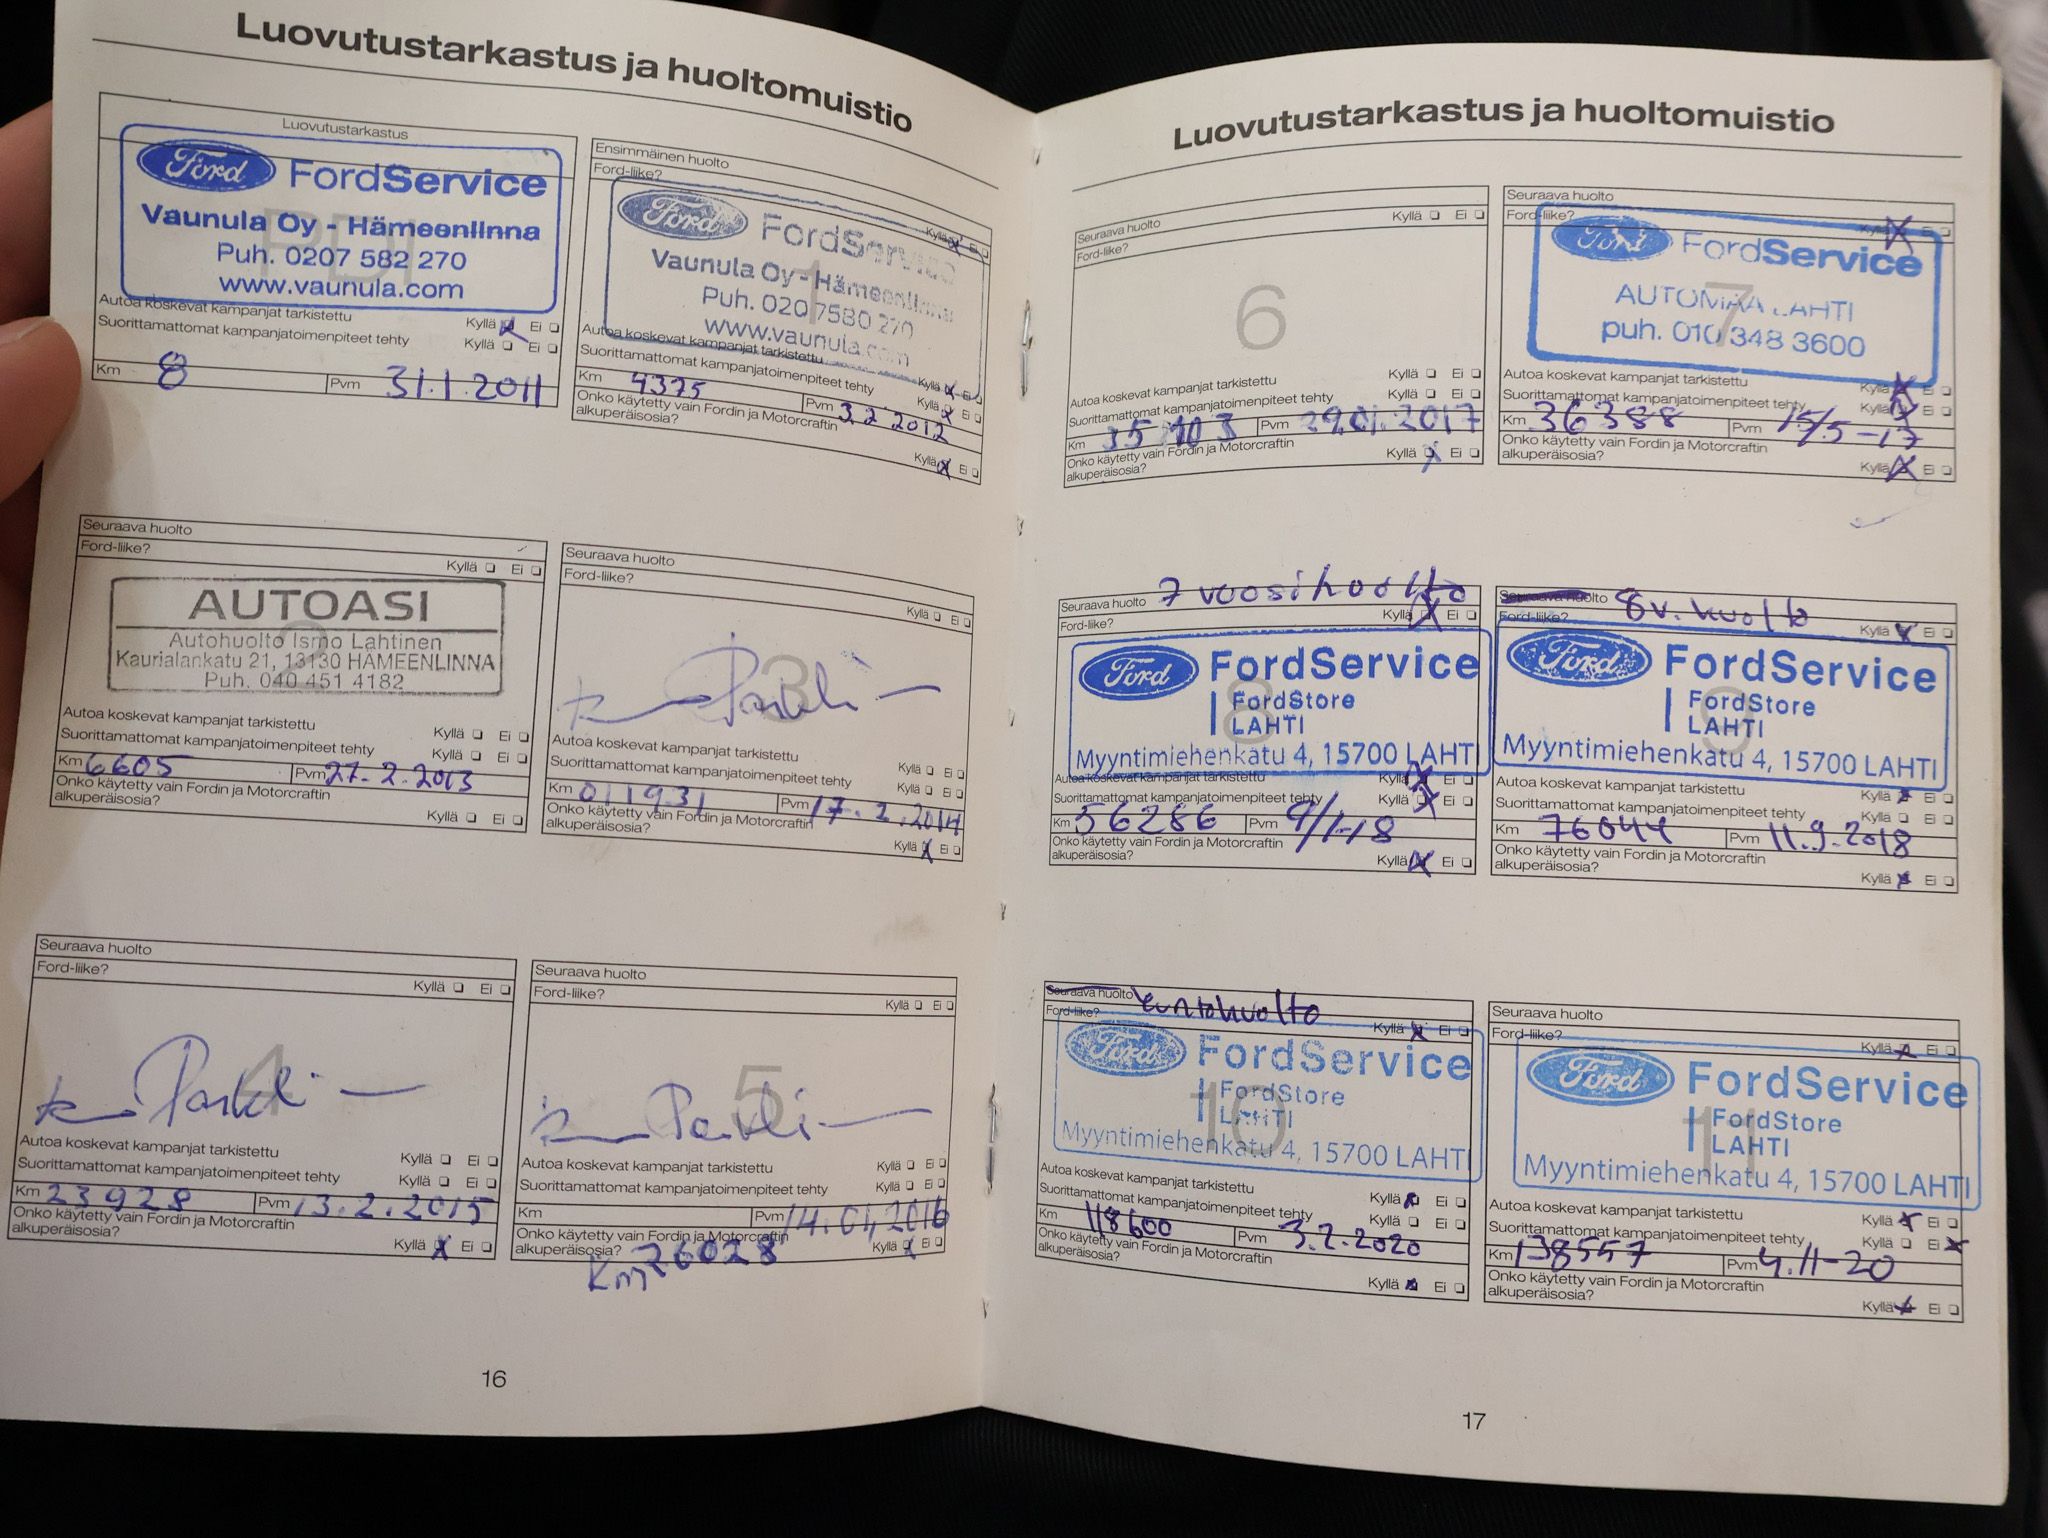 Luovutustarkastus ja huoltomuistio
Luovutustarkastus
Ford FordService
Vaunula Oy - Hämeenlinna
PDI
Puh. 0207 582 270
www.vaunula.com
Autoa koskevat kampanjat tarkistettu
Kyllä Ei
Suorittamattomat kampanjatoimenpiteet tehty
Kyllä Ei
Km 8 Pvm 31.1.2011
Ensimmäinen huolto
Ford-liike?
Kyllä Ei
Ford FordService
1
Vaunula Oy - Hämeenlinna
Puh. 020 7580 270
www.vaunula.com
Autoa koskevat kampanjat tarkistettu
Kyllä Ei
Suorittamattomat kampanjatoimenpiteet tehty
Kyllä Ei
Km 4375 Pvm 3.2.2012
Onko käytetty vain Fordin ja Motorcraftin
alkuperäisosia?
Kyllä Ei
Seuraava huolto
Ford-liike?
Kyllä Ei
AUTOASI
2
Autohuolto Ismo Lahtinen
Kaurialankatu 21, 13130 HÄMEENLINNA
Puh. 040 451 4182
Autoa koskevat kampanjat tarkistettu
Kyllä Ei
Suorittamattomat kampanjatoimenpiteet tehty
Kyllä Ei
Km 6605 Pvm 27.2.2013
Onko käytetty vain Fordin ja Motorcraftin
alkuperäisosia?
Kyllä Ei
Seuraava huolto
Ford-liike?
Kyllä Ei
3
Autoa koskevat kampanjat tarkistettu
Kyllä Ei
Suorittamattomat kampanjatoimenpiteet tehty
Kyllä Ei
Km 011931 Pvm 17.2.2014
Onko käytetty vain Fordin ja Motorcraftin
alkuperäisosia?
Kyllä Ei
Seuraava huolto
Ford-liike?
Kyllä Ei
4
Autoa koskevat kampanjat tarkistettu
Kyllä Ei
Suorittamattomat kampanjatoimenpiteet tehty
Kyllä Ei
Km 23928 Pvm 13.2.2015
Onko käytetty vain Fordin ja Motorcraftin
alkuperäisosia?
Kyllä Ei
Seuraava huolto
Ford-liike?
Kyllä Ei
5
Autoa koskevat kampanjat tarkistettu
Kyllä Ei
Suorittamattomat kampanjatoimenpiteet tehty
Kyllä Ei
Km Pvm 14.01.2016
Onko käytetty vain Fordin ja Motorcraftin
alkuperäisosia?
Kyllä Ei
Km 26028
16
Luovutustarkastus ja huoltomuistio
Seuraava huolto
Kyllä Ei
Ford-liike?
6
Autoa koskevat kampanjat tarkistettu
Kyllä Ei
Suorittamattomat kampanjatoimenpiteet tehty
Kyllä Ei
Km Pvm 29.01.2017
Onko käytetty vain Fordin ja Motorcraftin
alkuperäisosia?
Kyllä Ei
Seuraava huolto
Ford-liike?
Kyllä Ei
Ford FordService
7
AUTOMAA LAHTI
puh. 010 348 3600
Autoa koskevat kampanjat tarkistettu
Kyllä Ei
Suorittamattomat kampanjatoimenpiteet tehty
Kyllä Ei
Km 36388 Pvm 15/5-17
Onko käytetty vain Fordin ja Motorcraftin
alkuperäisosia?
Kyllä Ei
Seuraava huolto 7 vuosihuolto
Ford-liike?
Kyllä Ei
Ford FordService
8
FordStore
LAHTI
Myyntimiehenkatu 4, 15700 LAHTI
Autoa koskevat kampanjat tarkistettu
Kyllä Ei
Suorittamattomat kampanjatoimenpiteet tehty
Kyllä Ei
Km 56286 Pvm 9/1-18
Onko käytetty vain Fordin ja Motorcraftin
alkuperäisosia?
Kyllä Ei
Seuraava huolto 8v. huolto
Ford-liike?
Kyllä Ei
Ford FordService
9
FordStore
LAHTI
Myyntimiehenkatu 4, 15700 LAHTI
Autoa koskevat kampanjat tarkistettu
Kyllä Ei
Suorittamattomat kampanjatoimenpiteet tehty
Kyllä Ei
Km 76044 Pvm 11.9.2018
Onko käytetty vain Fordin ja Motorcraftin
alkuperäisosia?
Kyllä Ei
Seuraava huolto kuntohuolto
Ford-liike?
Kyllä Ei
Ford FordService
10
FordStore
LAHTI
Myyntimiehenkatu 4, 15700 LAHTI
Autoa koskevat kampanjat tarkistettu
Kyllä Ei
Suorittamattomat kampanjatoimenpiteet tehty
Kyllä Ei
Km 118600 Pvm 3.2.2020
Onko käytetty vain Fordin ja Motorcraftin
alkuperäisosia?
Kyllä Ei
Seuraava huolto
Ford-liike?
Kyllä Ei
Ford FordService
11
FordStore
LAHTI
Myyntimiehenkatu 4, 15700 LAHTI
Autoa koskevat kampanjat tarkistettu
Kyllä Ei
Suorittamattomat kampanjatoimenpiteet tehty
Kyllä Ei
Km 138557 Pvm 4.11-20
Onko käytetty vain Fordin ja Motorcraftin
alkuperäisosia?
Kyllä Ei
17